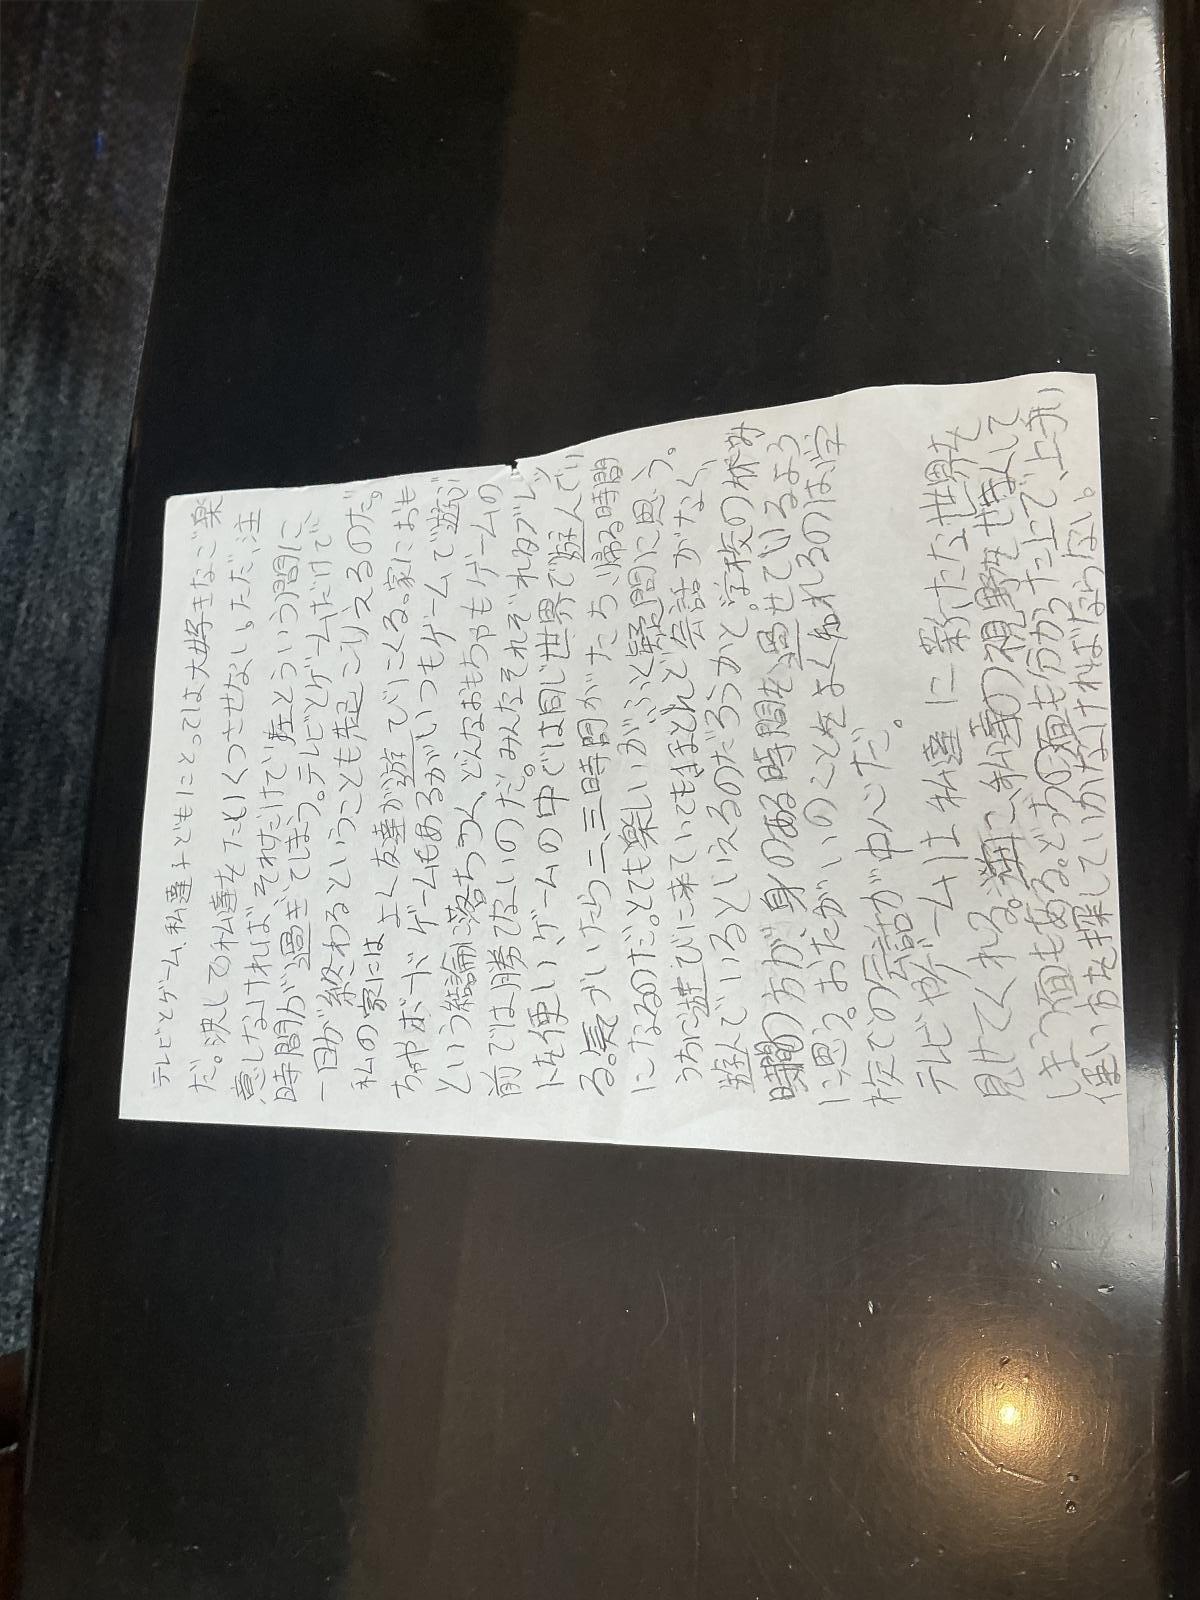 テレビとゲーム、私達子どもにとっては大好きなご楽
だ。決して私達をたいくつさせない。ただ、注
意しなければ、それだけで在とういう間に
時間が過ぎてしまう。テレビとゲームだけで
一日が終わるということも起こりえるのだ。
私の家には よく友達が遊びにくる。家におも
ちゃやボードゲームもあるがいつもゲームで遊ぶ
という結論に落ちつく。どんなおもちゃもゲームの
前では勝てないのだ。みんなそれぞれタブレッ
トを使い、ゲームの中では同じ世界で遊んでい
る。気づいたら二、三時間がたち、帰る時間
になるのだ。とても楽しいが、ふと疑問に思う。
うちに遊びに来ていてもほとんど会話がなく、
遊んでいるといえるのだろうかと。学校の休み
時間の方が、身のある時間を過せているよう
に思う。おたがいのことをよく知れるのは学
校での会話が中心だ。
テレビやゲームは私達に新たな世界を
見せてくれる。逆に、私達の視野をせばめて
しまう面もある。どちらの面も分かった上で、上手い
使い方を探していかなければならない。